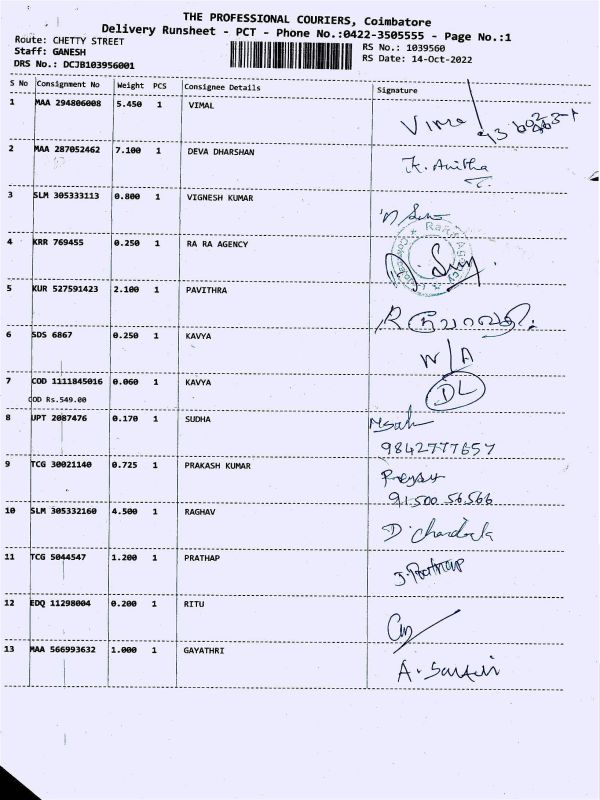 THE PROFESSIONAL COURIERS, Coimbatore
Delivery Runsheet - PCT - Phone No.:0422-3505555 - Page No.:1
Route: CHETTY STREET
RS No.: 1039560
Staff: GANESH
RS Date: 14-Oct-2022
DRS No.: DCJB103956001
S No Consignment No Weight PCS Consignee Details Signature
1 MAA 294806008 5.450 1 VIMAL
2 MAA 287052462 7.100 1 DEVA DHARSHAN K. Anitha
3 SLM 305333113 0.800 1 VIGNESH KUMAR
4 KRR 769455 0.250 1 RA RA AGENCY
5 KUR 527591423 2.100 1 PAVITHRA
6 SDS 6867 0.250 1 KAVYA N/A
7 COD 1111845016 0.060 1 KAVYA DL
COD Rs.549.00
8 UPT 2087476 0.170 1 SUDHA
9842777657
9 TCG 30021140 0.725 1 PRAKASH KUMAR
91500 56566
10 SLM 305332160 4.500 1 RAGHAV
11 TCG 5044547 1.200 1 PRATHAP
12 EDQ 11298004 0.200 1 RITU
13 MAA 566993632 1.000 1 GAYATHRI